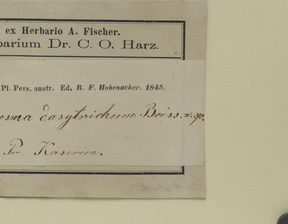 ex Herbario A. Fischer.
barium Dr. C. O. Harz.
Pl. Pers. austr. Ed. R. F. Hohenacker. 1845.
osma dasytrichum Boiss. n. sp.
Pr. Kaserun.